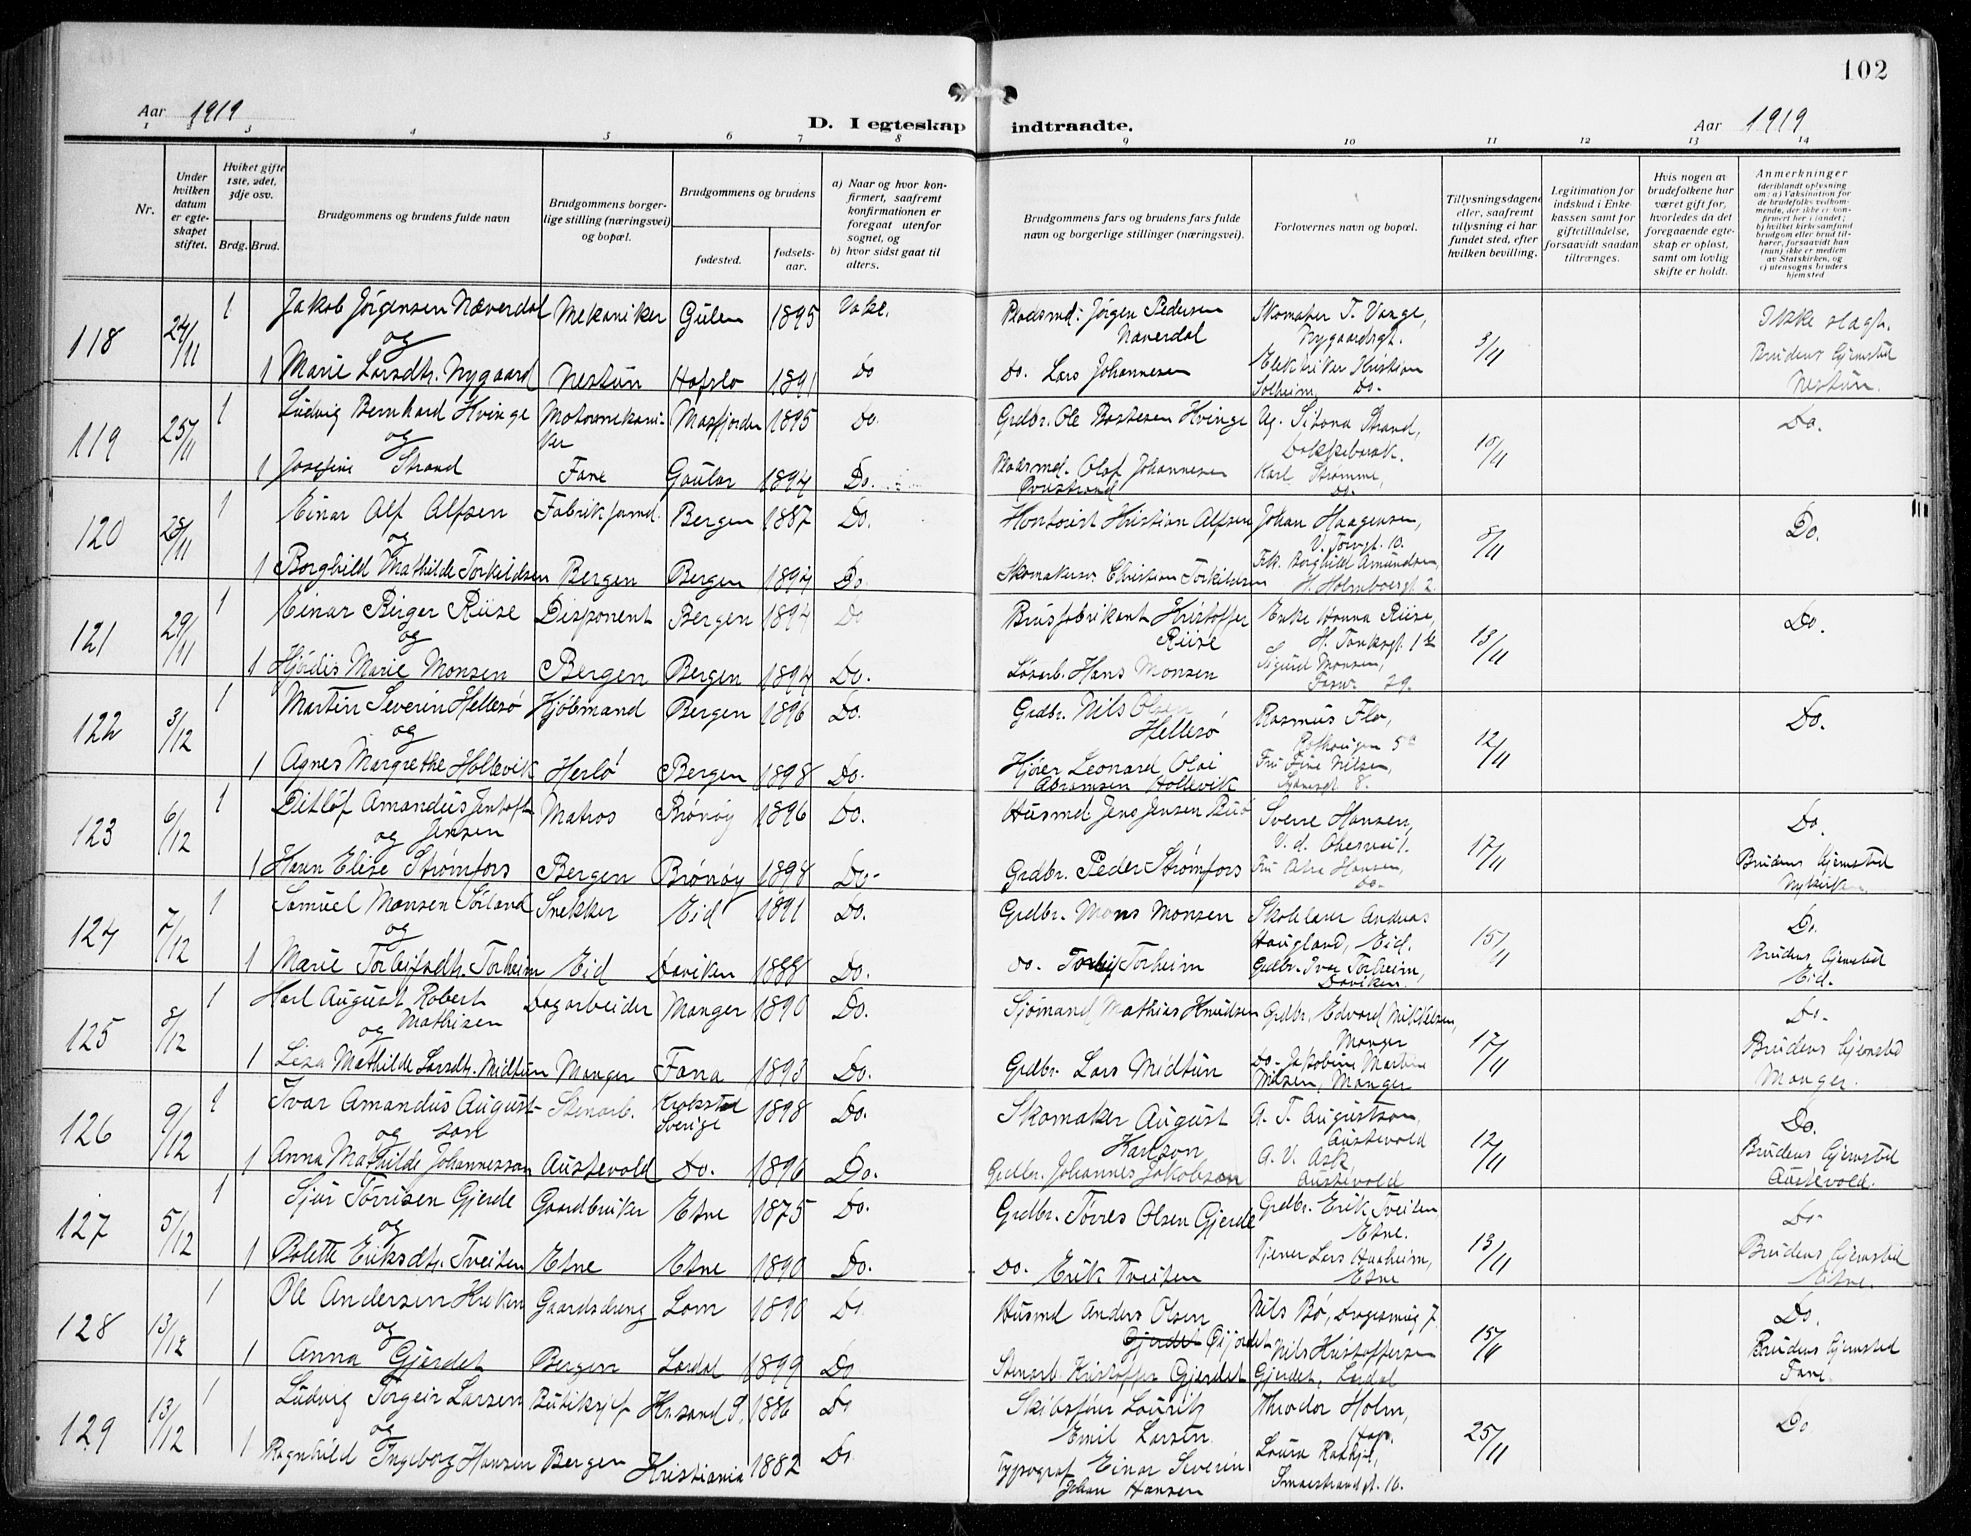 102
Aar 1919
D. I egteskap indtraadte.
Aar 1919
1 2 3 4 5 6 7 8 9 10 11 12 13 14
Nr.
Under hvilken datum er egteskapet stiftet.
Hvilket gifte 1ste, 2det, 3dje osv.
Brdg. Brud.
Brudgommens og brudens fulde navn
Brudgommens borgerlige stilling (næringsvei) og bopæl.
Brudgommens og brudens
fødested.
fødselsaar.
a) Naar og hvor konfirmert, saafremt konfirmationen er foregaat utenfor sognet, og
b) hvor sidst gaat til alters.
Brudgommens fars og brudens fars fulde navn og borgerlige stillinger (næringsvei).
Forlovernes navn og bopæl.
Tillysningsdagene eller, saafremt tillysning ei har fundet sted, efter hvilken bevilling.
Legitimation for indskud i Enkekassen samt for giftetilladelse, forsaavidt saadan tiltrænges.
Hvis nogen av brudefolkene har været gift før, hvorledes da det foregaaende egteskap er opløst, samt om lovlig skifte er holdt.
Anmerkninger
(deriblandt oplysning om: a) Vaksination for de brudefolks vedkommende, der ikke er konfirmert her i landet; b) hvilket kirkesamfund brudgom eller brud tilhører, forsaavidt han (hun) ikke er medlem av Statskirken, og c) utensogns bruders hjemsted
118 24/11 1 Jakob Jørgensen Næverdal Mekaniker Gulen 1895 Vakc. Pladsmd. Jørgen Pedersen Næverdal Skomaker T. Vange, Nygaardsgt. 3/11 Ikke slægt.
og
1 Marie Larsdtr. Nygaard Nestun Hafslo 1891 Do Do. Lars Johannesen Elektriker Kristian Solheim, Do. Brudens hjemsted Nestun.
119 25/11 1 Ludvig Bernhard Hvinge Motormekaniker Masfjorden 1895 Do. Grdbr. Ole Hvinge Strand, 10/11 Do.
og
1 Josefine Strand Fane Gaular 1894 Do. Pladsmd. Olaf Johannesen Øvrestrand Karl Strømme, Do.
120 28/11 1 Einar Alf Alfsen Fabrikformd. Bergen 1887 Do. Kontorist Kristian Alfsen Johan Haagensen, V. Torvgt. 10. 8/11 Do.
og
1 Borghild Mathilde Torkildsen Bergen Bergen 1894 Do. Skomakersv. Christian Torkildsen Frk. Borghild Amundsen, H. Holmboesgt. 2.
121 29/11 1 Einar Birger Riise Disponent Bergen 1894 Do Brusfabrikant Kristoffer Riise Enke Riise, H. Tanksgt. 13/11 Do.
og
1 Hjørdis Marie Monsen Bergen Bergen 1894 Do. Løsarb. Hans Monsen Sigurd Monsen, 29.
122 3/12 1 Martin Severin Hellesø Hjölmand Bergen 1896 Do. Grdbr. Nils Olsen Hellesø Rasmus Flo, 12/11 Do.
og
1 Agnes Margrethe Hollevik Herlö Bergen 1898 Do. Leonard Olai Abramsen Hollevik Fru Fine Nilsen, 8.
123 6/12 1 Ditlöf Amandus Jentoft Jensen Matros Brönöy 1896 Do. Husmd. Jens Jensen Sverre Hansen, 17/11 Do.
og
1 Hanna Elise Strømfors Bergen Brönöy 1898 Do. Grdbr. Peder Strømfors Fru Hansen, Do. Brudens hjemsted Nykirken
124 7/12 1 Samuel Monsen Sörland Snekker Eid 1891 Do. Grdbr. Mons Monsen Skolelærer Andreas Haugland, Eid. 15/11 Do.
og
1 Marie Torleifsdtr. Torheim Eid Daviken 1888 Do. Do. Torleif Torheim Grdbr. Ivar Torheim, Daviken. Brudens hjemsted Eid.
125 8/12 1 Karl August Robert Mathisen Dagarbeider Manger 1890 Do. Sjömand Mathias Knudsen Grdbr. Edvard Mikkelsen, Manger 17/11 Do.
og
1 Lisa Mathilde Larsdtr. Midtun Manger Fana 1893 Do. Grdbr. Lars Midtun Do. Jakobine Martine Nilsen, Manger Brudens hjemsted Manger.
126 9/12 1 Ivar Amandus Augustson Stenarb. Krokstad Sverige 1898 Do. Skomaker August Karlson A. T. Augustson, Austevold 12/11 Do.
og
1 Anna Mathilde Johannesson Austevold Do. 1896 Do. Grdbr. Johannes Jakobson A. V. Ask Austevold Brudens hjemsted Austevold.
127 5/12 1 Sjur Torrisen Gjerde Gaardbruker Etne 1875 Do. Grdbr. Torres Olsen Gjerde Grdbr. Erik Tveiten Etne. 13/11 Do.
og
1 Bolette Eriksdtr. Tveiten Etne Etne 1890 Do. Do. Erik Tveiten Tjener Lars Haaheim, Etne Brudens hjemsted Etne.
128 13/12 1 Ole Andersen Gaardsdreng Lom 1890 Do. Husmd Anders Olsen Nils Bö, 7. 15/11 Do.
og
1 Anna Gjerdet Bergen Lærdal 1899 Do Stenarb. Kristoffer Gjerdet Nils Kristoffersen Gjerdet, Lærdal Brudens hjemsted Fane.
129 13/12 1 Ludvig Torgeir Larsen Butiksjef Krsand S. 1886 Do Skibsfører Lauritz Emil Larsen Theodor Holm, Hop. 25/11 Do
og
1 Ragnhild Ingeborg Hansen Bergen Kristiania 1882 Do Typograf Einar Severin Johan Hansen Laura Smaastrandgt. 16.